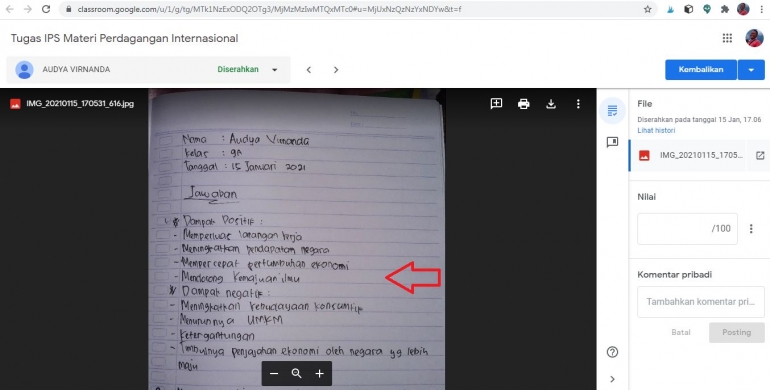 classroom.google.com/u/1/g/tg/MTk1NzExODQ2OTg3/MjMzMzIwMTQxMTc0#u=MjUxNzQzNzYxNDYw&t=f
Tugas IPS Materi Perdagangan Internasional
AUDYA VIRNANDA
Diserahkan
Kembalikan
IMG_20210115_170531_616.jpg
Nama : Audya Virnanda
kelas : 9A
Tanggal : 15 Januari 2021
Jawaban
1. Dampak Positif :
- Memperluas lapangan kerja
- Meningkatkan pendapatan negara
- Mempercepat pertumbuhan ekonomi
- Mendorong Kemajuan ilmu
Dampak negatif :
- Meningkatkan kebudayaan konsumtif
- Menurunnya UMKM
- Ketergantungan
- Timbulnya penjajahan ekonomi oleh negara yg lebih
maju
File
Diserahkan pada tanggal 15 Jan, 17.06
Lihat histori
IMG_20210115_1705...
Nilai
/100
Komentar pribadi
Tambahkan komentar pri...
Batal
Posting